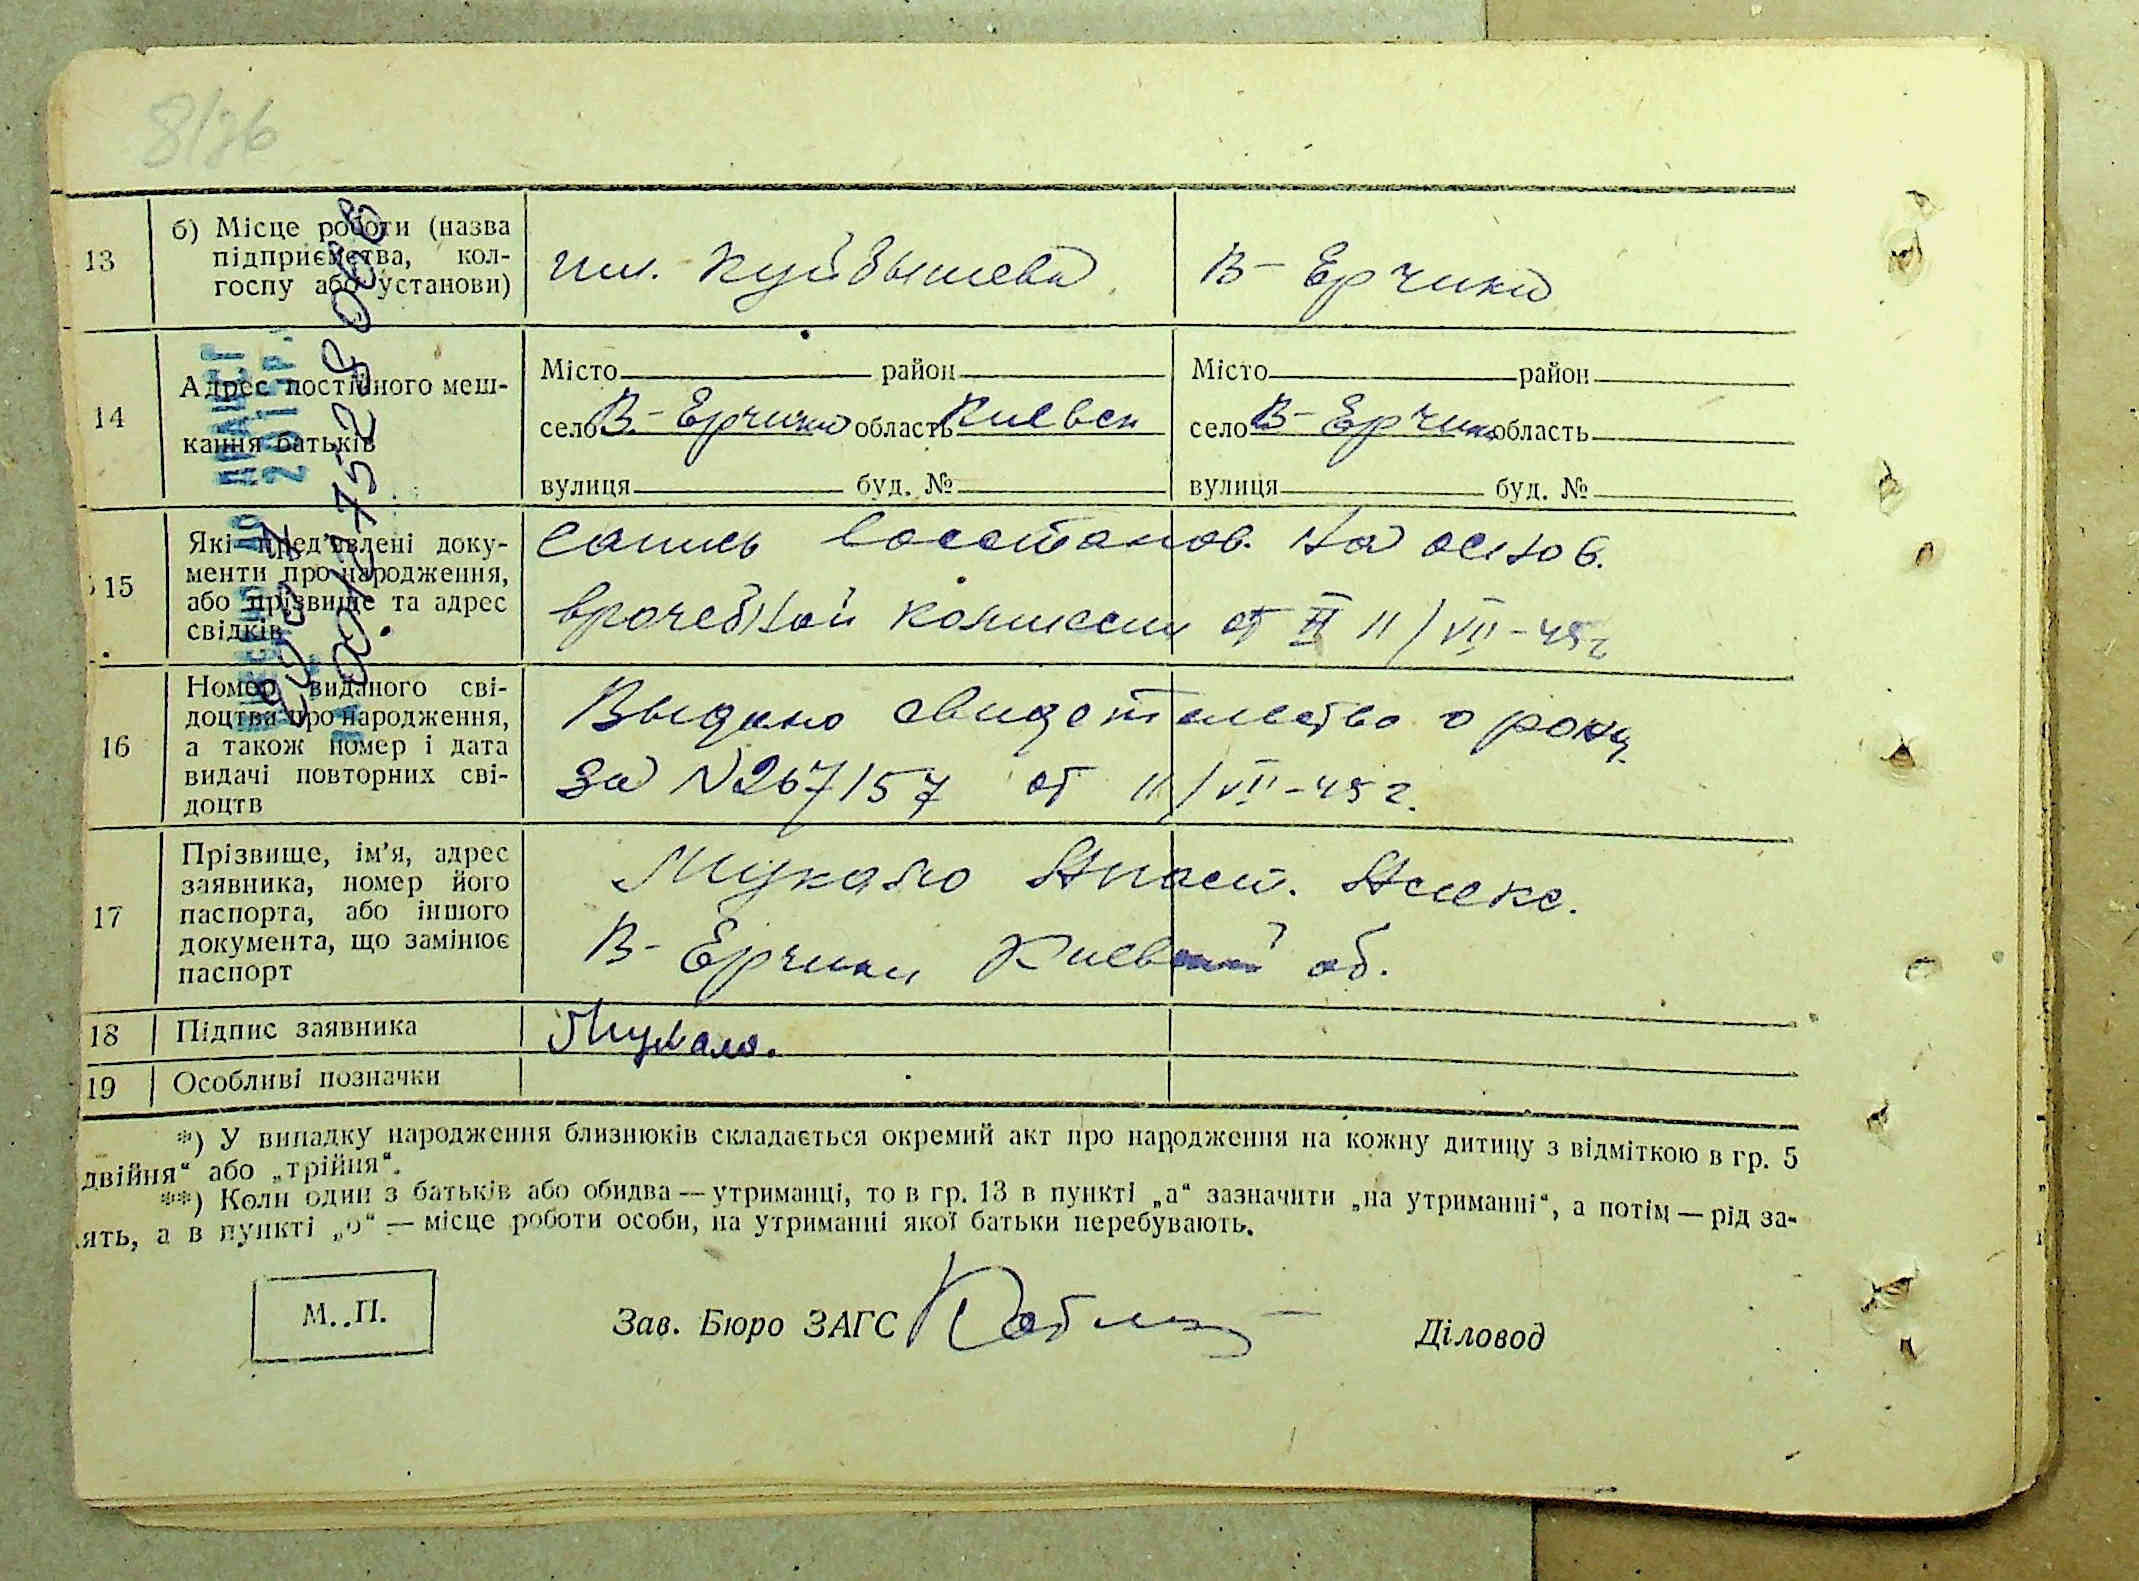 8/26
13
б) Місце роботи (назва
підприємства, кол-
госпу або установи)
им. Куйбышева
В- Ерчики
14
Адрес постійного меш-
кання батьків
Місто район
село В- Ерчики область Киевск
вулиця буд. №
Місто район
село В- Ерчики область
вулиця буд. №
15
Які пред'явлені доку-
менти про народження,
або прізвище та адрес
свідків
Запись восстанов. на основ.
врачебной комиссии от 11/VII-45г
16
Номер виданого сві-
доцтва про народження,
а також номер і дата
видачі повторних сві-
доцтв
Выдано свидетельство о рожд.
за N267157 от 11/VII-45г.
17
Прізвище, ім'я, адрес
заявника, номер його
паспорта, або іншого
документа, що замінює
паспорт
Мукало Анаст. Алекс.
В- Ерчики Киевской об.
18
Підпис заявника
Мукало.
19
Особливі позначки
*) У випадку народження близнюків складається окремий акт про народження на кожну дитину з відміткою в гр. 5
двійня“ або „трійня“.
**) Коли один з батьків або обидва — утриманці, то в гр. 13 в пункті „а“ зазначити „на утриманні“, а потім — рід за-
ять, а в пункті „б“ — місце роботи особи, на утриманні якої батьки перебувають.
М. П.
Зав. Бюро ЗАГС
Діловод